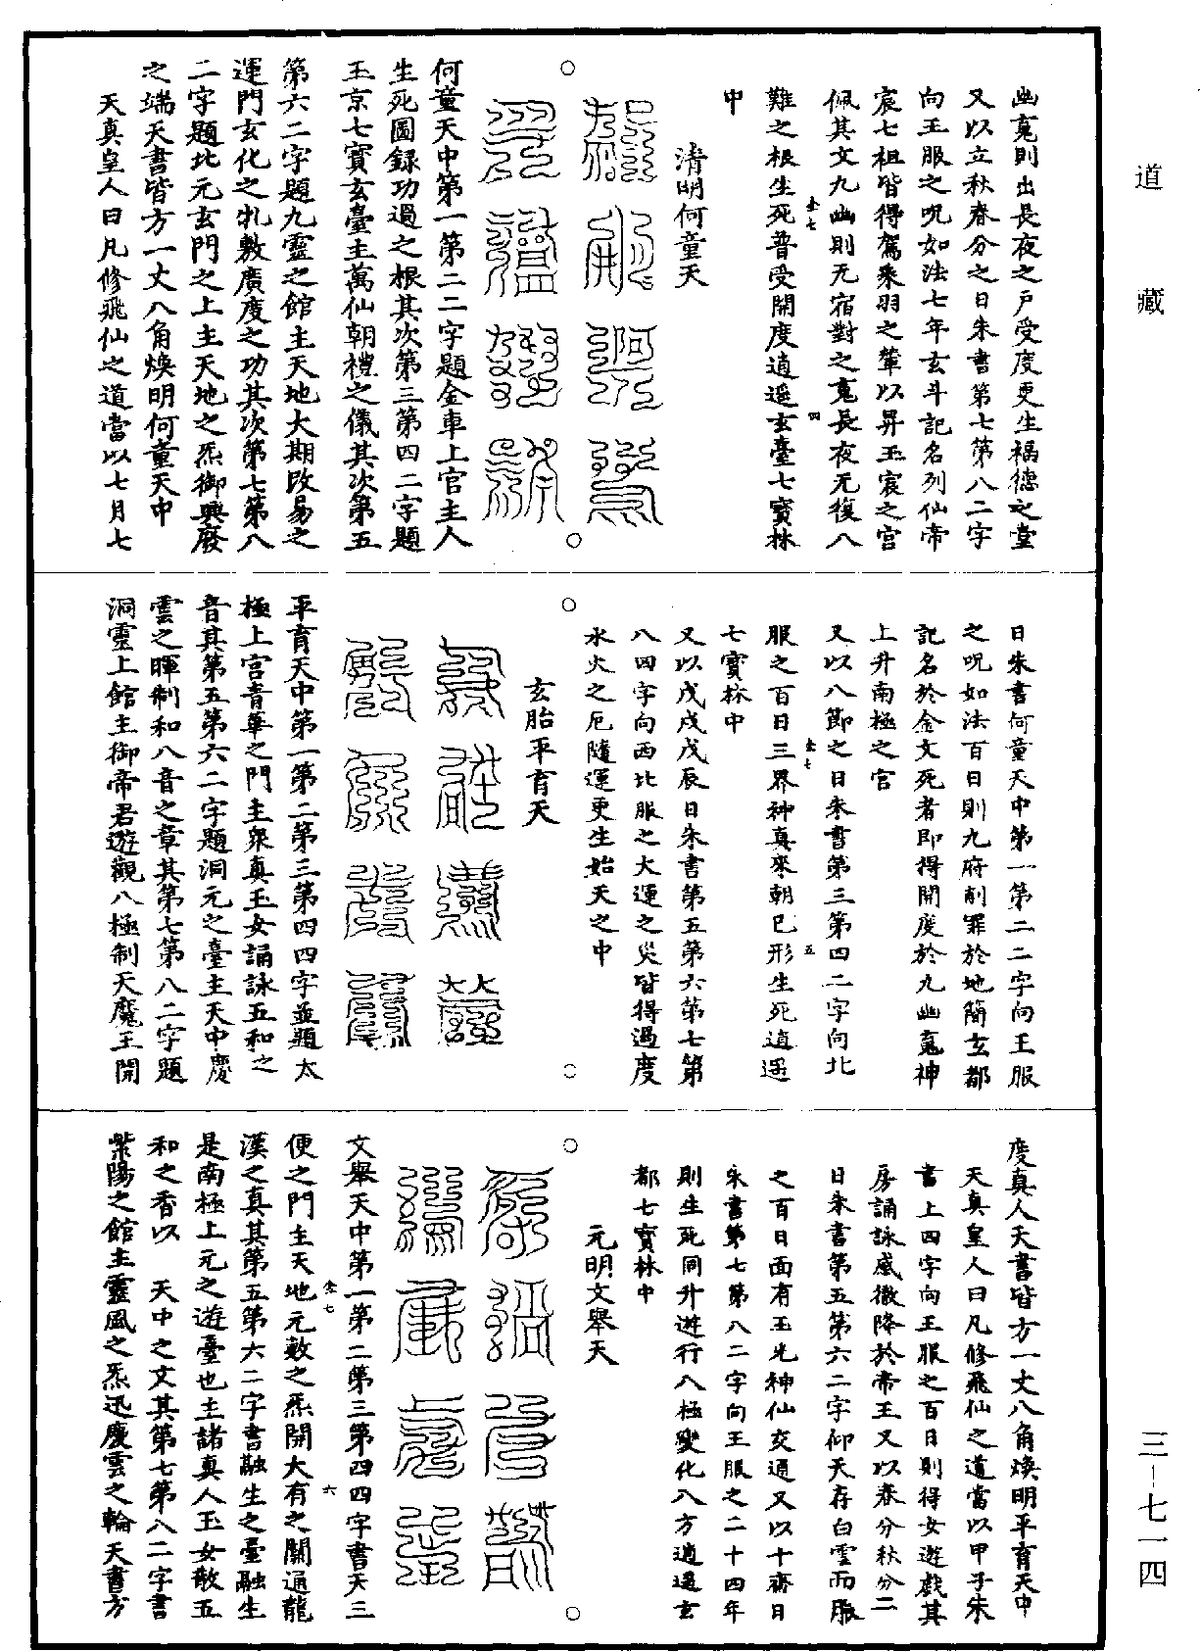 道藏
三—七一四
幽魂則出長夜之戶受度更生福德之堂
又以立秋春分之日朱書第七第八二字
向王服之呪如法七年玄斗記名列仙帝
宸七祖皆得駕乘羽之輦以昇玉宸之宮
佩其文九幽則无宿對之魂長夜无復八
難之根生死普受開度逍遥玄臺七寳林
中
清明何童天
何童天中第一第二二字題金車上官主人
生死圖録功過之根其次第三第四二字題
玉京七寳玄臺主萬仙朝禮之儀其次第五
第六二字題九靈之館主天地大期改易之
運門玄化之炁敷廣度之功其次第七第八
二字題北元玄門之上主天地之炁御興廢
之端天書皆方一丈八角煥明何童天中
天真皇人曰凡修飛仙之道當以七月七
日朱書何童天中第一第二二字向王服
之呪如法百日則九府削罪於地簡玄都
記名於金文死者即得開度於九幽魂神
上升南極之宮
又以八節之日朱書第三第四二字向北
服之百日三界神真來朝已形生死逍遥
七寳林中
又以戊戌戊辰日朱書第五第六第七第
八四字向西北服之大運之災皆得過度
水火之厄隨運更生始天之中
玄胎平育天
平育天中第一第二第三第四四字並題太
極上宮青華之門主衆真玉女誦詠五和之
音其第五第六二字題洞元之臺主天中慶
雲之暉制和八音之章其第七第八二字題
洞靈上館主御帝君遊觀八極制天魔王開
度真人天書皆方一丈八角煥明平育天中
天真皇人曰凡修飛仙之道當以甲子朱
書上四字向王服之百日則得女遊戲其
房誦詠感徹降於帝王又以春分秋分二
日朱書第五第六二字仰天存白雲而服
之百日面有玉光神仙交通又以十齋日
朱書第七第八二字向王服之二十四年
則生死同升遊行八極變化八方逍遥玄
都七寳林中
元明文舉天
文舉天中第一第二第三第四四字書天三
便之門主天地元數之炁開大有之關通龍
漢之真其第五第六二字書融生之臺融生
是南極上元之遊臺也主諸真人玉女散五
和之香以 天中之文其第七第八二字書
紫陽之館主靈風之炁迅慶雲之輪天書方